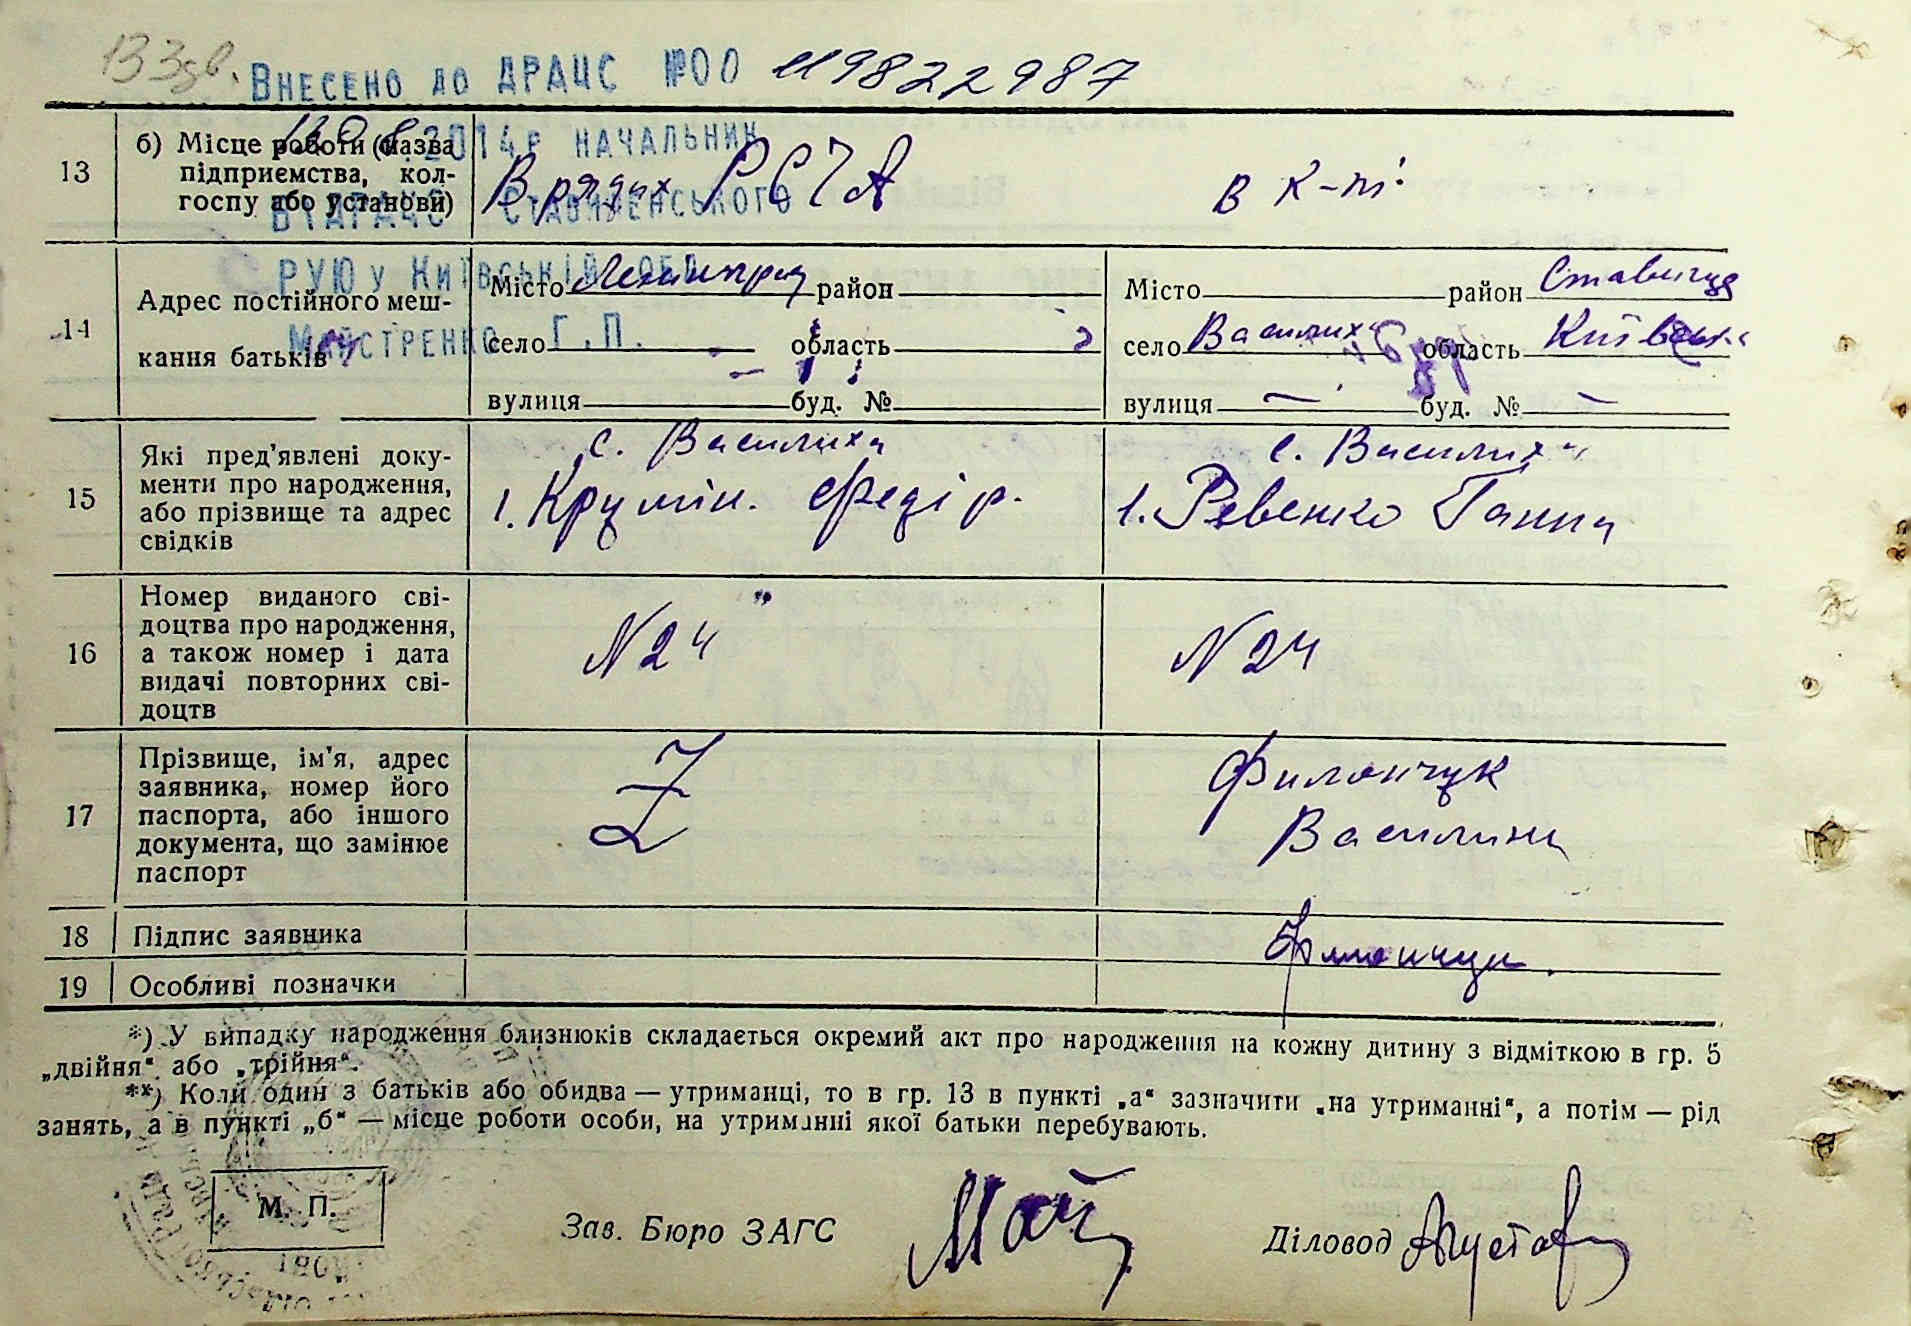 133дв.
ВНЕСЕНО ДО ДРАЦС №00 119822987
2014р НАЧАЛЬНИК
ВДРАЦС СТАВИЩЕНСЬКОГО
РУЮ у КИЇВСЬКІЙ ОБЛ.
МАЙСТРЕНКО Г.П.
13 б) Місце роботи (назва підприємства, кол-
госпу або установи) В рядах РСЧА в к-пі
14 Адрес постійного меш-
кання батьків
Місто Ленинград район
село область
вулиця буд. №
Місто район Ставище
село Василиха область Київська
вулиця — буд. № —
15 Які пред'явлені доку-
менти про народження,
або прізвище та адрес
свідків
с. Василиха
1. Крумін. Федір.
с. Василиха
1. Ревенко Ганна
16 Номер виданого сві-
доцтва про народження,
а також номер і дата
видачі повторних сві-
доцтв
N 24 N 24
17 Прізвище, ім'я, адрес
заявника, номер його
паспорта, або іншого
документа, що замінює
паспорт
Z
Филончук
Василина
18 Підпис заявника Филончук
19 Особливі позначки
*) У випадку народження близнюків складається окремий акт про народження на кожну дитину з відміткою в гр. 5
„двійня“ або „трійня“.
**) Коли один з батьків або обидва — утриманці, то в гр. 13 в пункті „а“ зазначити „на утриманні“, а потім — рід
занять, а в пункті „б“ — місце роботи особи, на утриманні якої батьки перебувають.
М. П.
Зав. Бюро ЗАГС Діловод